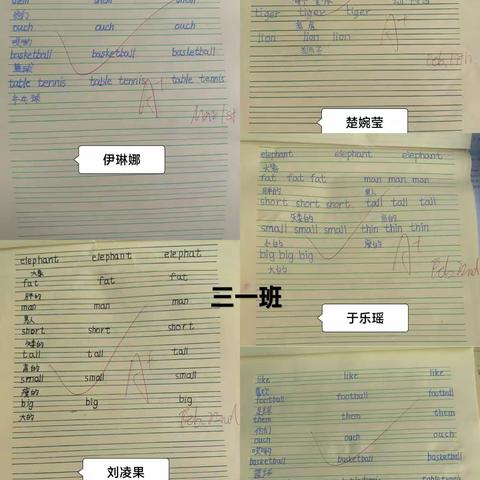 them them them
ouch ouch ouch
哎哟
basketball basketball basketball
篮球
table tennis table tennis table tennis
乒乓球
A+
伊琳娜
tiger tiger tiger
老虎
lion lion lion
狮子
A+
Feb.18th
楚婉莹
elephant elephant elephant
大象
fat fat fat man man man
胖的 男人
short short short tall tall tall
矮的 高的
small small small thin thin thin
小的 瘦的
big big big
大的
A+
Feb.22nd
于乐瑶
三一班
elephant elephant elephat
大象
fat fat fat
胖的
man man man
男人
short short short
矮的
tall tall tall
高的
small small small
瘦的
big big big
大的
A+
Feb.22nd
刘凌果
like like like
喜欢
football football football
足球
them them them
他们
ouch ouch ouch
哎哟
basketball basketball basketball
篮球